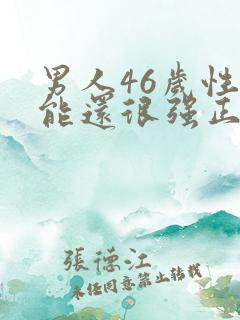 男人46歲性
能還很强正
張德江
未任同意禁止转载